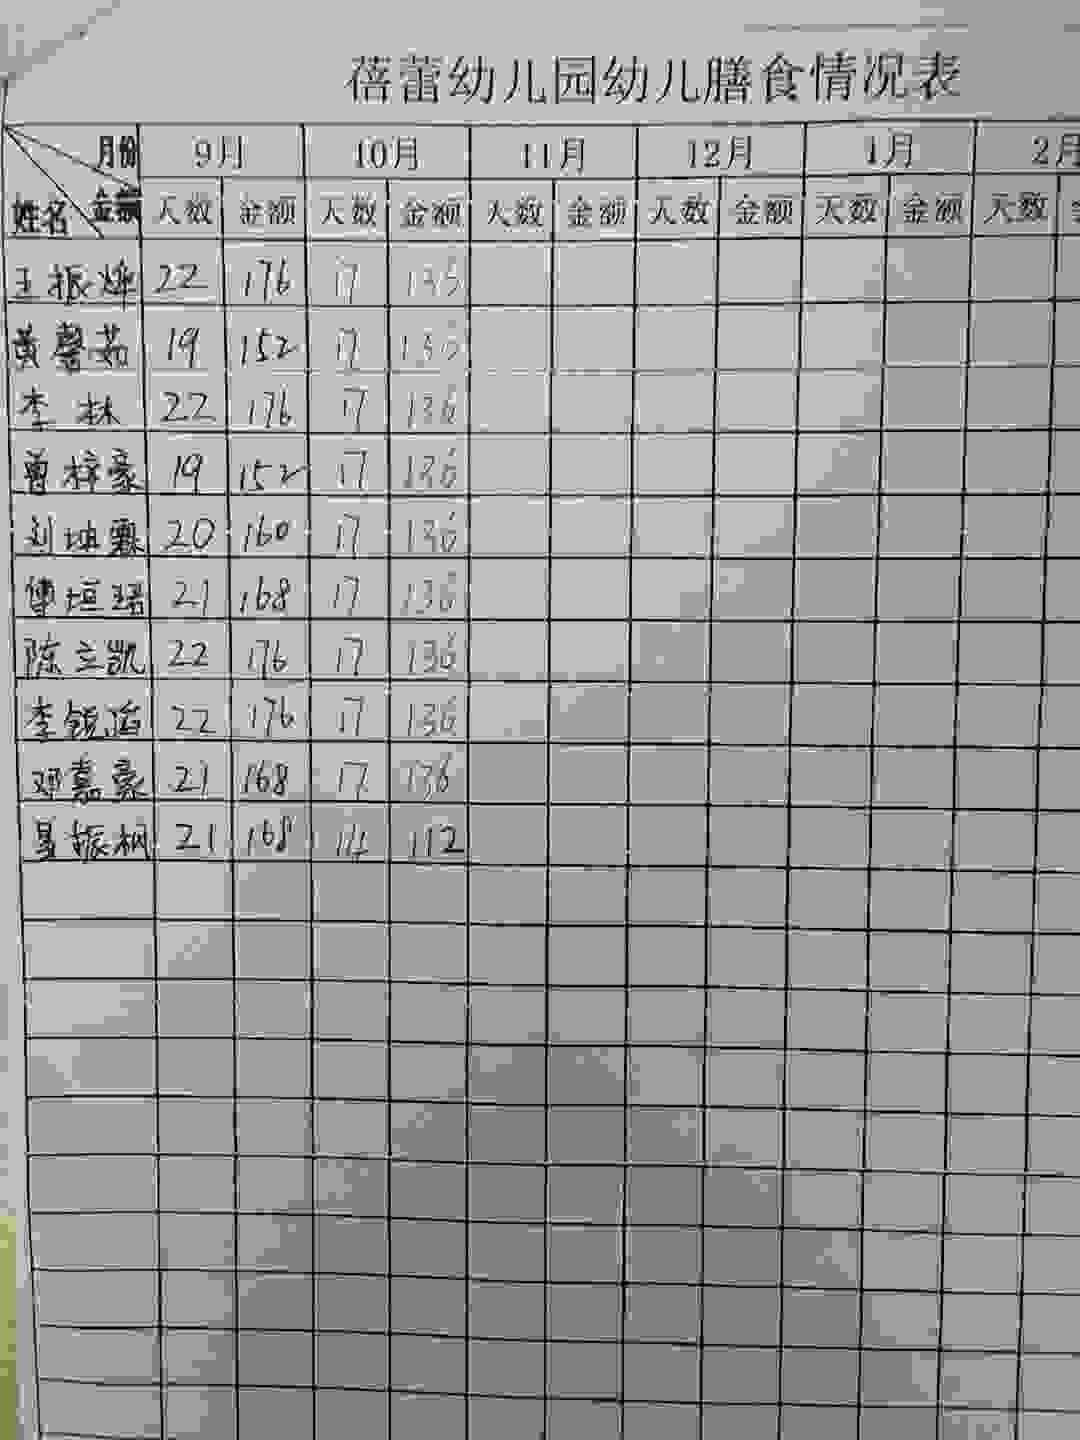 蓓蕾幼儿园幼儿膳食情况表
月份 9月 10月 11月 12月 1月 2月
姓名 金额 天数 金额 天数 金额 天数 金额 天数 金额 天数 金额 天数
王振烨 22 176 17 136
黄馨茹 19 152 17 136
李林 22 176 17 136
曾梓豪 19 152 17 136
刘坤霖 20 160 17 136
傅垣珺 21 168 17 136
陈立凯 22 176 17 136
李锐滔 22 176 17 136
邓嘉豪 21 168 17 136
振枫 21 168 14 112